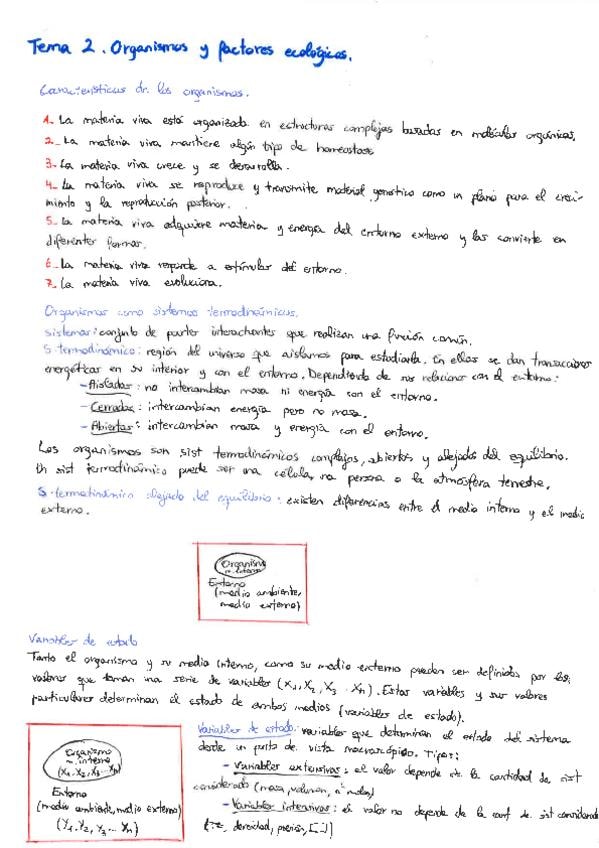 Tema 2. Organismos y factores ecológicos.
Características de los organismos.
1. La materia viva está organizada en estructuras complejas basadas en moléculas orgánicas.
2. La materia viva mantiene algún tipo de homeostasis
3. La materia viva crece y se desarrolla.
4. La materia viva se reproduce y transmite material genético como un plano para el creci-
miento y la reproducción posterior.
5. La materia viva adquiere materia y energía del entorno externo y las convierte en
diferentes formas.
6. La materia viva responde a estímulos del entorno.
7. La materia viva evoluciona.
Organismos como sistemas termodinámicos.
Sistemas: conjunto de partes interactuantes que realizan una función común.
S. termodinámico: región del universo que aislamos para estudiarla. En ellas se dan transacciones
energéticas en su interior y con el entorno. Dependiendo de sus relaciones con el entorno:
- Aislados: no intercambian masa ni energía con el entorno.
- Cerrados: intercambian energía pero no masa.
- Abiertos: intercambian masa y energía con el entorno.
Los organismos son sist termodinámicos complejos, abiertos y alejados del equilibrio.
Un sist termodinámico puede ser una célula, una persona o la atmósfera terrestre.
S. termodinámico alejado del equilibrio: existen diferencias entre el medio interno y el medio
externo.
Organismo
m. interno
Entorno
(medio ambiente,
medio externo)
Variables de estado
Tanto el organismo y su medio interno, como su medio externo pueden ser definidos por los
valores que toman una serie de variables (X1, X2, X3 ... Xn). Estas variables y sus valores
particulares determinan el estado de ambos medios (variables de estado).
Organismo
m. interno
(X1. X2, X3... Xn)
Entorno
(medio ambiente, medio externo)
(Y1. Y2, Y3 ... Yn)
Variables de estado: variables que determinan el estado del sistema
desde un punto de vista macroscópico. Tipos:
- Variables extensivas: el valor depende de la cantidad de sist
considerado (masa, volumen, nº moles)
- Variables intensivas: el valor no depende de la cant de sist considerado
densidad, presión, [ ])